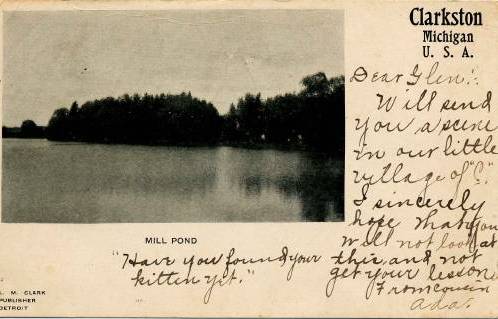 Clarkston
Michigan
U. S. A.
Dear Glen:
Will send
you a scene
in our little
village of "C".
I sincerely
hope that you
will not look at
this, and not
get your lessons
From cousin
Ada.
MILL POND
"Have you found your
kitten yet."
L. M. CLARK
PUBLISHER
DETROIT